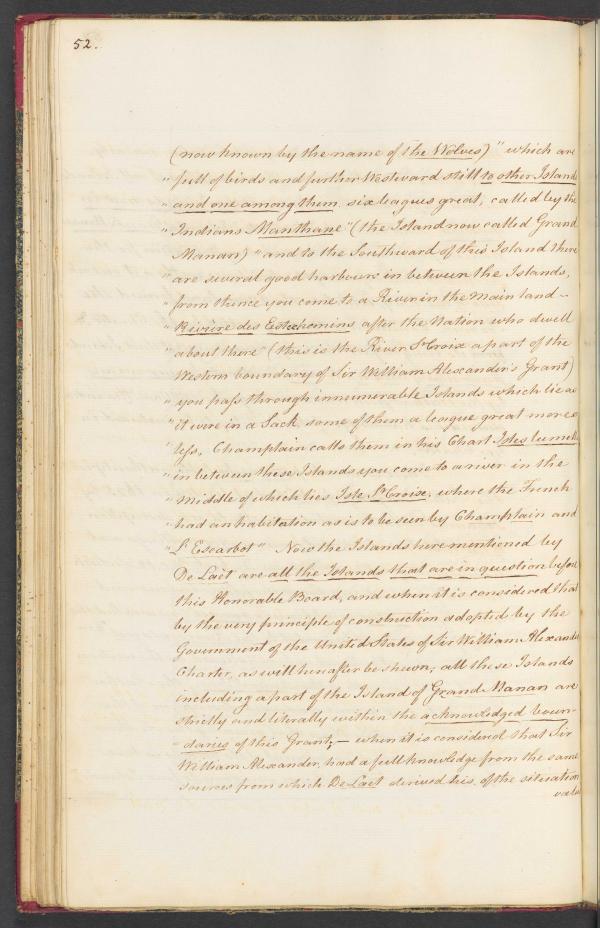 52.
(now known by the name of the Wolves) " which are
" full of birds and further Westward still to other Islands
" and one among them six leagues great, called by the
" Indians Manthane " (the Island now called Grand
Manan) " and to the Southward of this Island there
" are several good harbours in between the Islands,
" from thence you come to a River in the Main land -
" Riviere des Estechemins after the Nation who dwell
about there " (this is the River St Croix a part of the
Western boundary of Sir William Alexander's Grant)
" you pass through innumerable Islands which lie as
" it were in a Sack, some of them a league great more or
" less, Champlain calls them in his Chart Isles
" in between these Islands you come to a river in the
" Middle of which lies Isle St Croise, where the French
" had an habitation as is to be seen by Champlain and
" L'Escarbot " Now the Islands here mentioned by
De Laet are all the Islands that are in question before
this Honorable Board, and when it is considered that
by the very principle of construction adopted by the
Government of the United States of Sir William Alexander
Charter, as will hereafter be shewn, all these Islands
including a part of the Island of Grand Manan are
strictly and literally within the acknowledged boun-
-daries of this Grant; — when it is considered that Sir
William Alexander, had a full knowledge from the same
sources from which De Laet derived his, of the situation